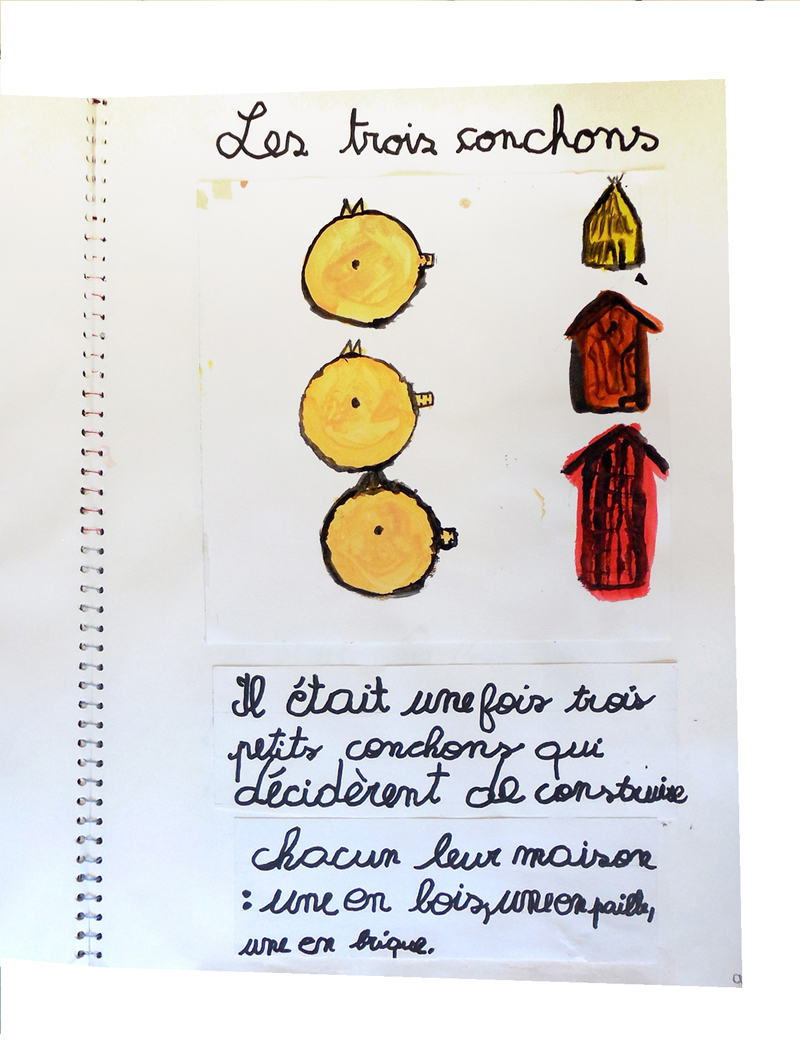 Les trois conchons
Il était une fois trois
petits conchons qui
décidèrent de construire
chacun leur maison
: une en bois, une en paille,
une en brique.